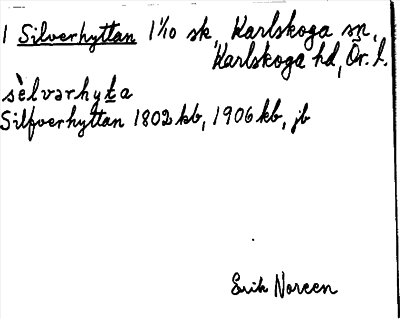 1 Silverhyttan 1 1/10 sk, Karlskoga sn,
Karlskoga hd, Ör. l.
sèlvərhyta
Silfverhyttan 1802 kb, 1906 kb, jb
Erik Noreen